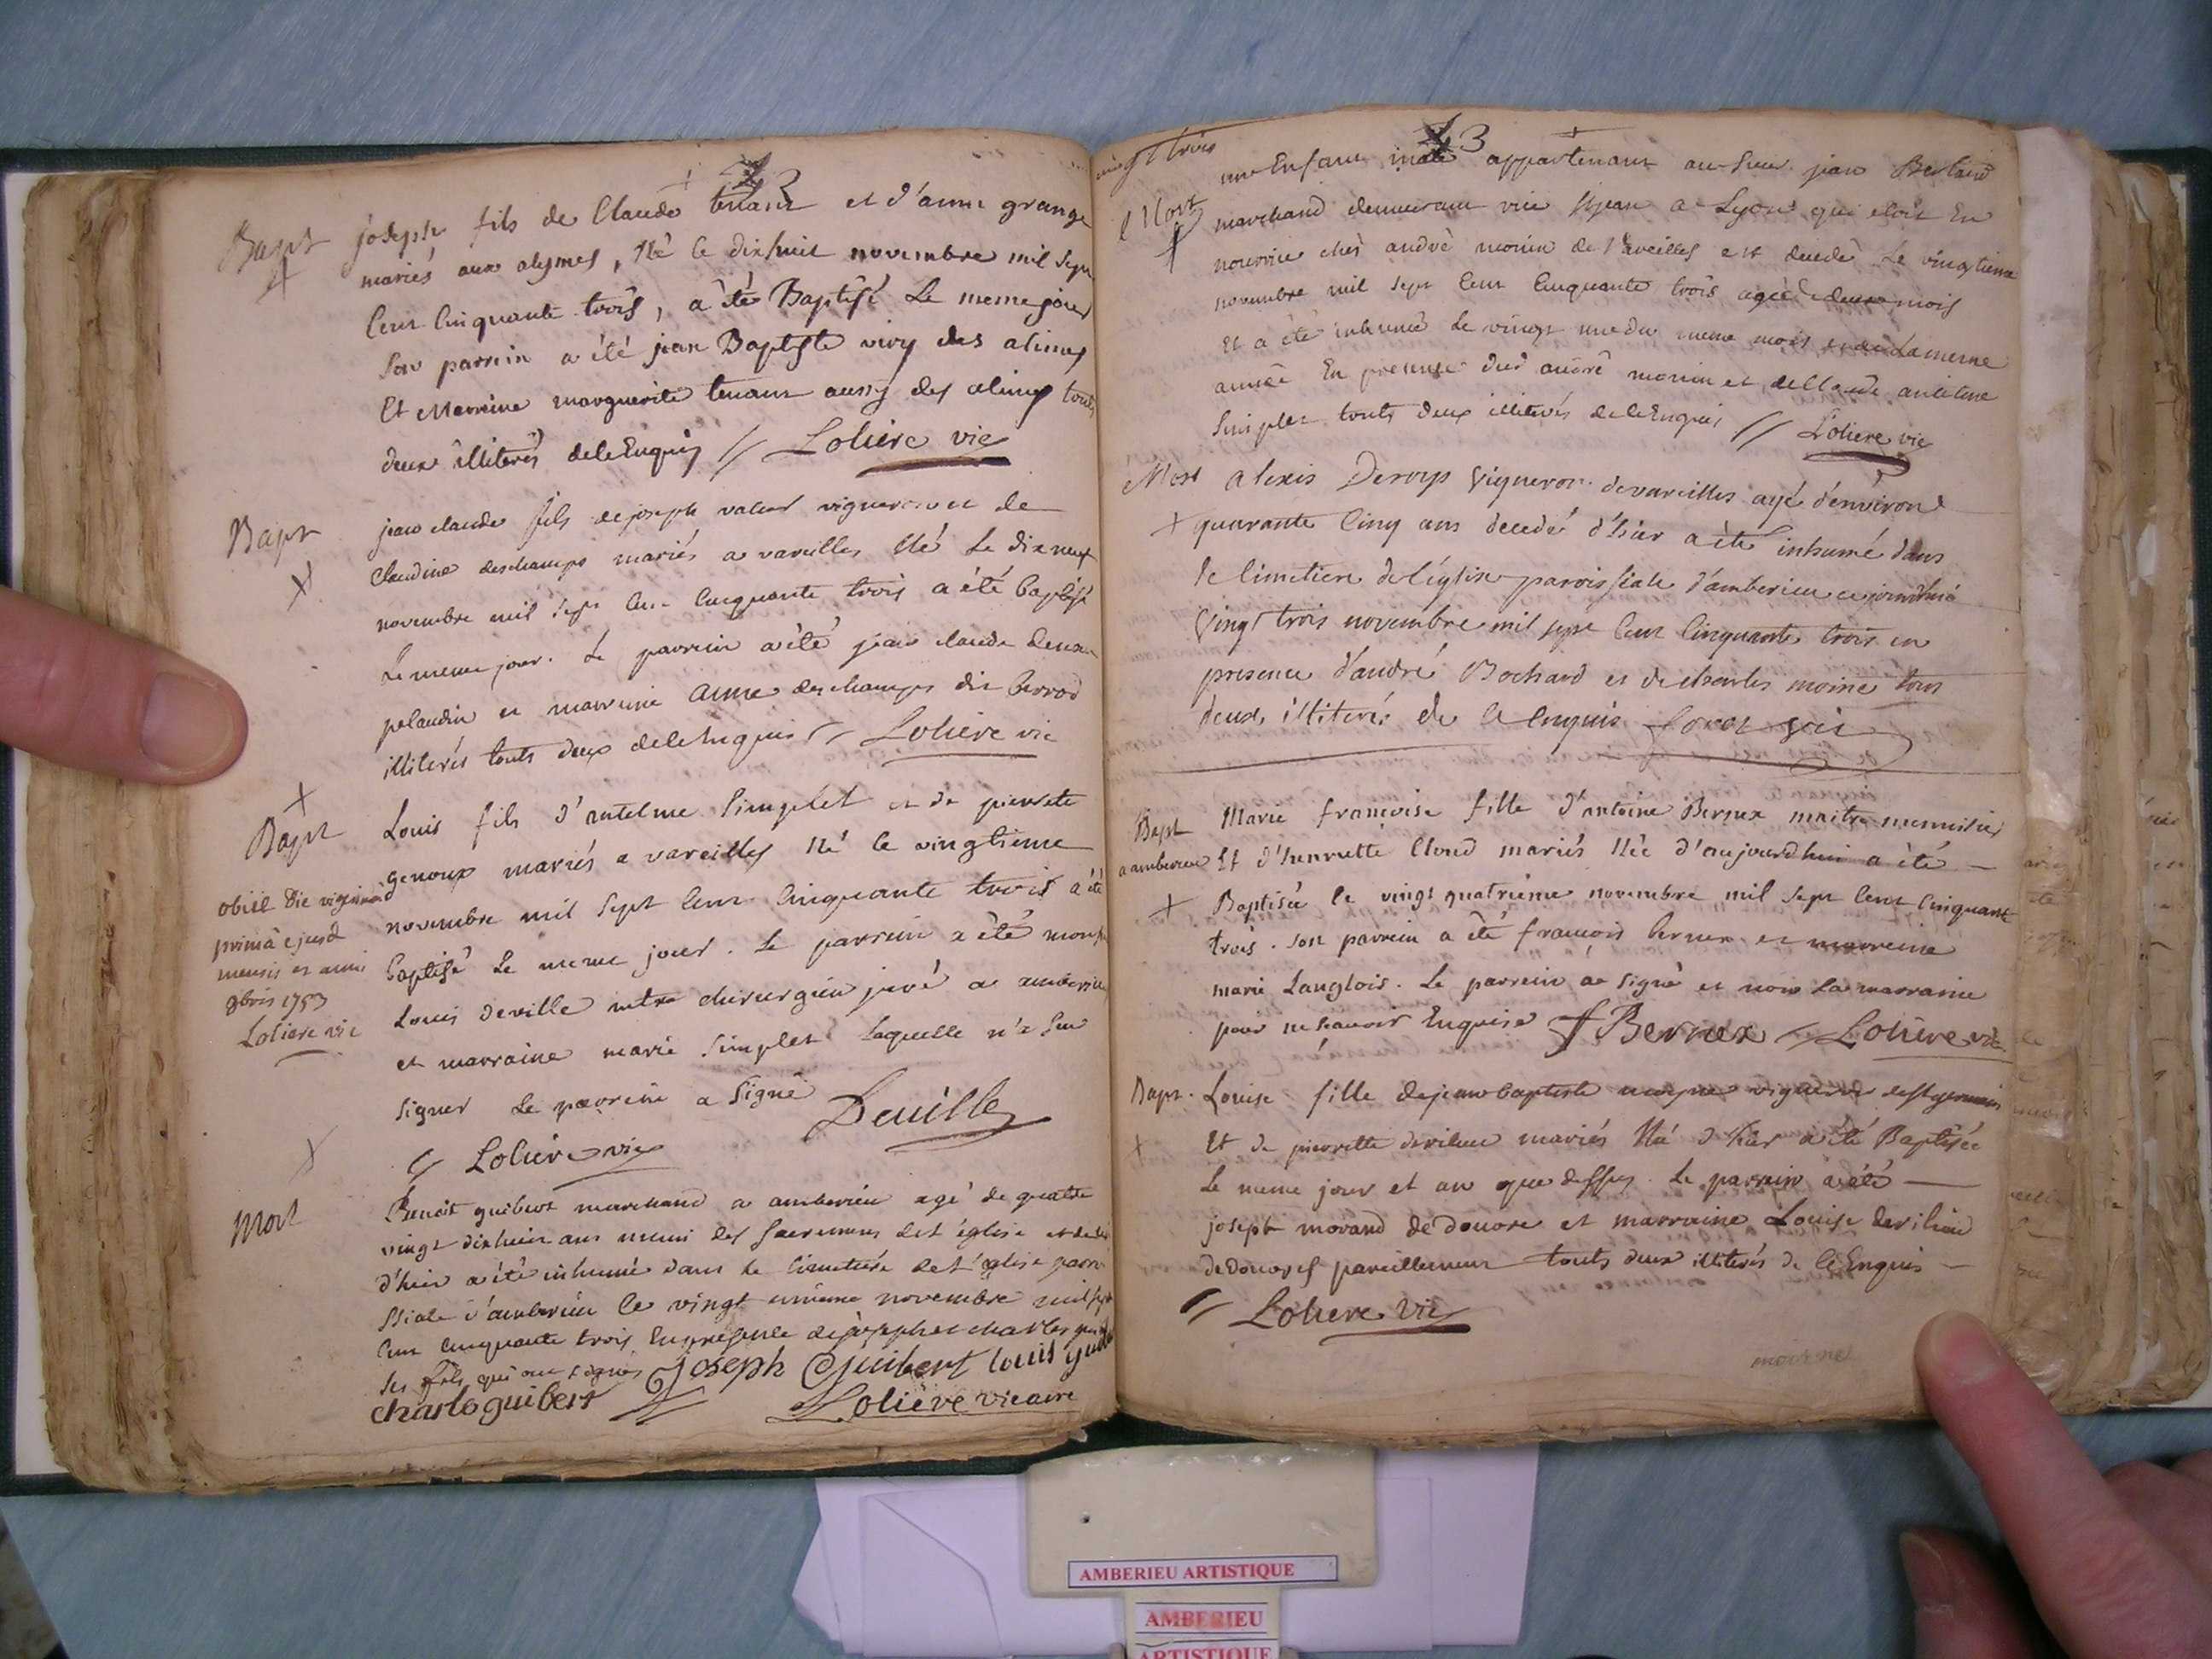 43
Bapt
joseph fils de Claude tenant et d'anne grange
mariés aux alymes, Né le dixhuit novembre mil sept
Cent Cinquante trois, a été Baptisé Le meme jour
Son parrin a été jean Baptiste vivy des alimes
Et Marreine marguerite tenant aussy des alimes touts
deux illiterés de ce Enquis // Loliere vic
Bapt
jean claude fils de joseph vigneron et de
Claudine deschamps mariés a vareilles Né Le dix neuf
novembre mil sept Cent Cinquante trois a été baptisé
Le meme jour. Le parrein a été jean claude
pelaudin et marreine anne deschamps dit
illiterés touts deux de ce Enquis // Loliere vic
Bapt
Louis fils d'antelme Simplet et de pierrete
genoux mariés a vareilles Né le vingtieme
novembre mil Sept Cent Cinquante trois a été
baptisé Le meme jour. Le parrein a été
Louis deville chirurgien juré a
et marraine marie Simplet Laquelle n'a Seu
Signer Le parrein a Signé Deville
// Loliere vic
obiit Die
prima ejusd
mensis et anni
9bris 1753
Loliere vic
Mort
Benoit guibert marchand a amberieu agé de quatre
vingt dixhuit ans muni des Sacremens de l'église et
d'hier a été inhumé dans le Cimetiere de l'église paroi
ssiale d'amberieu le vingt unieme novembre mil sept
Cent Cinquante trois En presence de joseph et charles
Ses fils qui ont signés Joseph Guibert louis
charle guibert // Loliére vicaire
vingt trois
43
Mort
un Enfant male appartenant au Sieur jean
marchand demeurant rue St jean a Lyon qui etoit En
nourrice chés andré monin de Vareilles est decedé Le vingtieme
novembre mil sept Cent Cinquante trois agé de deux mois
Et a été inhumé Le vingt une du meme mois et de La meme
année En presence dud andré monin et de Claude antelme
Simplet touts deux illiterés de ce Enquis // Loliere vic
Mort
alexis Deroys Vigneron de vareilles agé d'environ
quarante Cinq ans decedé d'hier a été inhumé dans
le Cimetiere de l'église paroissiale d'amberieu ce
Vingt trois novembre mil sept Cent Cinquante trois en
presence d'andré Bochard et de charles moine tous
deux illiterés de Ce Enquis
Bapt
a amberieu
Marie francoise fille d'antoine Bernex maitre menuisier
Et d'henriette Cloud mariés Née d'aujourdhui a été
Baptisée le vingt quatrieme novembre mil sept Cent Cinquante
trois. Son parrein a été francois bernex et marreine
marie Langlois. Le parrein a signé et non La marraine
pour ne scavoir Enquise f Bernex // Loliere vic
Bapt.
Louise fille de jean baptiste vigneron de St germain
Et de pierrette mariés Né d'hier a été Baptisée
Le meme jour et an que dessus. Le parrein a été
joseph morand de Douvre et marraine Louise
de Douvres pareillement touts deux illiterés de Ce Enquis
// Loliere Vic
AMBERIEU ARTISTIQUE
AMBERIEU
ARTISTIQUE